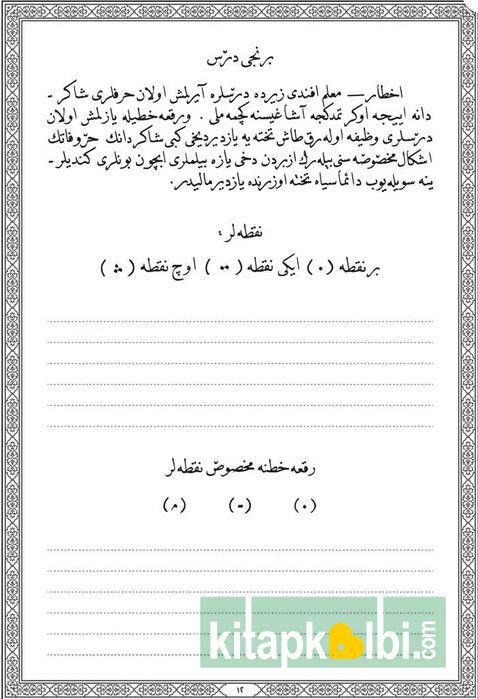 برنجی درس
اخطار — معلم افندی زیرده درسلره آیرلمش اولان حرفلری شاكر -
دانه اییجه اوكرتمدكجه آشاغیسنه كچمه ملی . ورقعه خطیله یازلمش اولان
درسلری وظیفه اوله رق طاش تخته یه یازدیردیغی كبی شاكردانك حروفاتك
اشكال مخصوصه سنی بیله رك ازبردن دخی یازه بیلملری ایچون بونلری كندیلر -
ینه سویله یوب دائما سیاه تخته اوزرنده یازدیرمالیدر.
نقطه لر :
بر نقطه (٠) ایكی نقطه (··) اوچ نقطه (؞)
رقعه خطنه مخصوص نقطه لر
(٠) (-) (^)
kitapkalbi.com
١٢